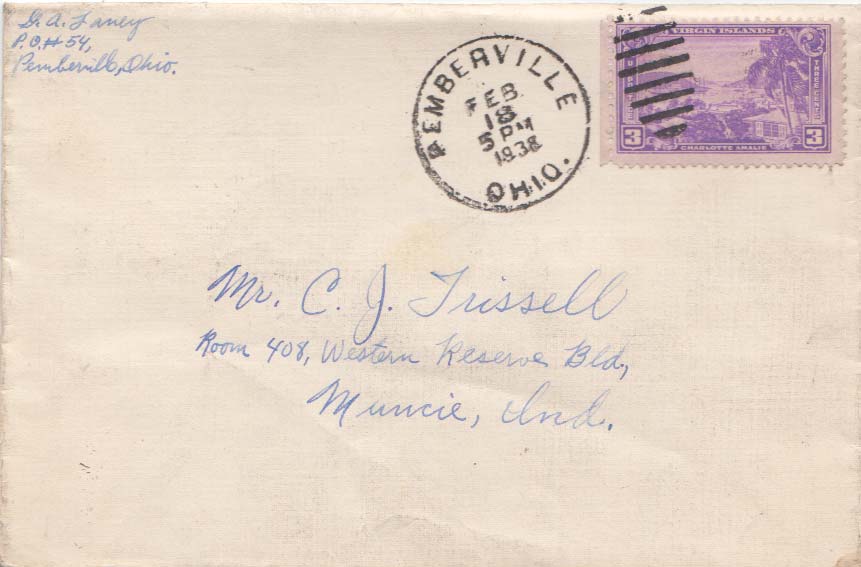 G. A. Laney
P.O.# 54,
Pemberville, Ohio.
PEMBERVILLE
FEB
18
5 PM
1938
OHIO.
VIRGIN ISLANDS
THREE CENTS
3 3
CHARLOTTE AMALIE
Mr. C. J. Trissell
Room 408, Western Reserve Bld,
Muncie, Ind.